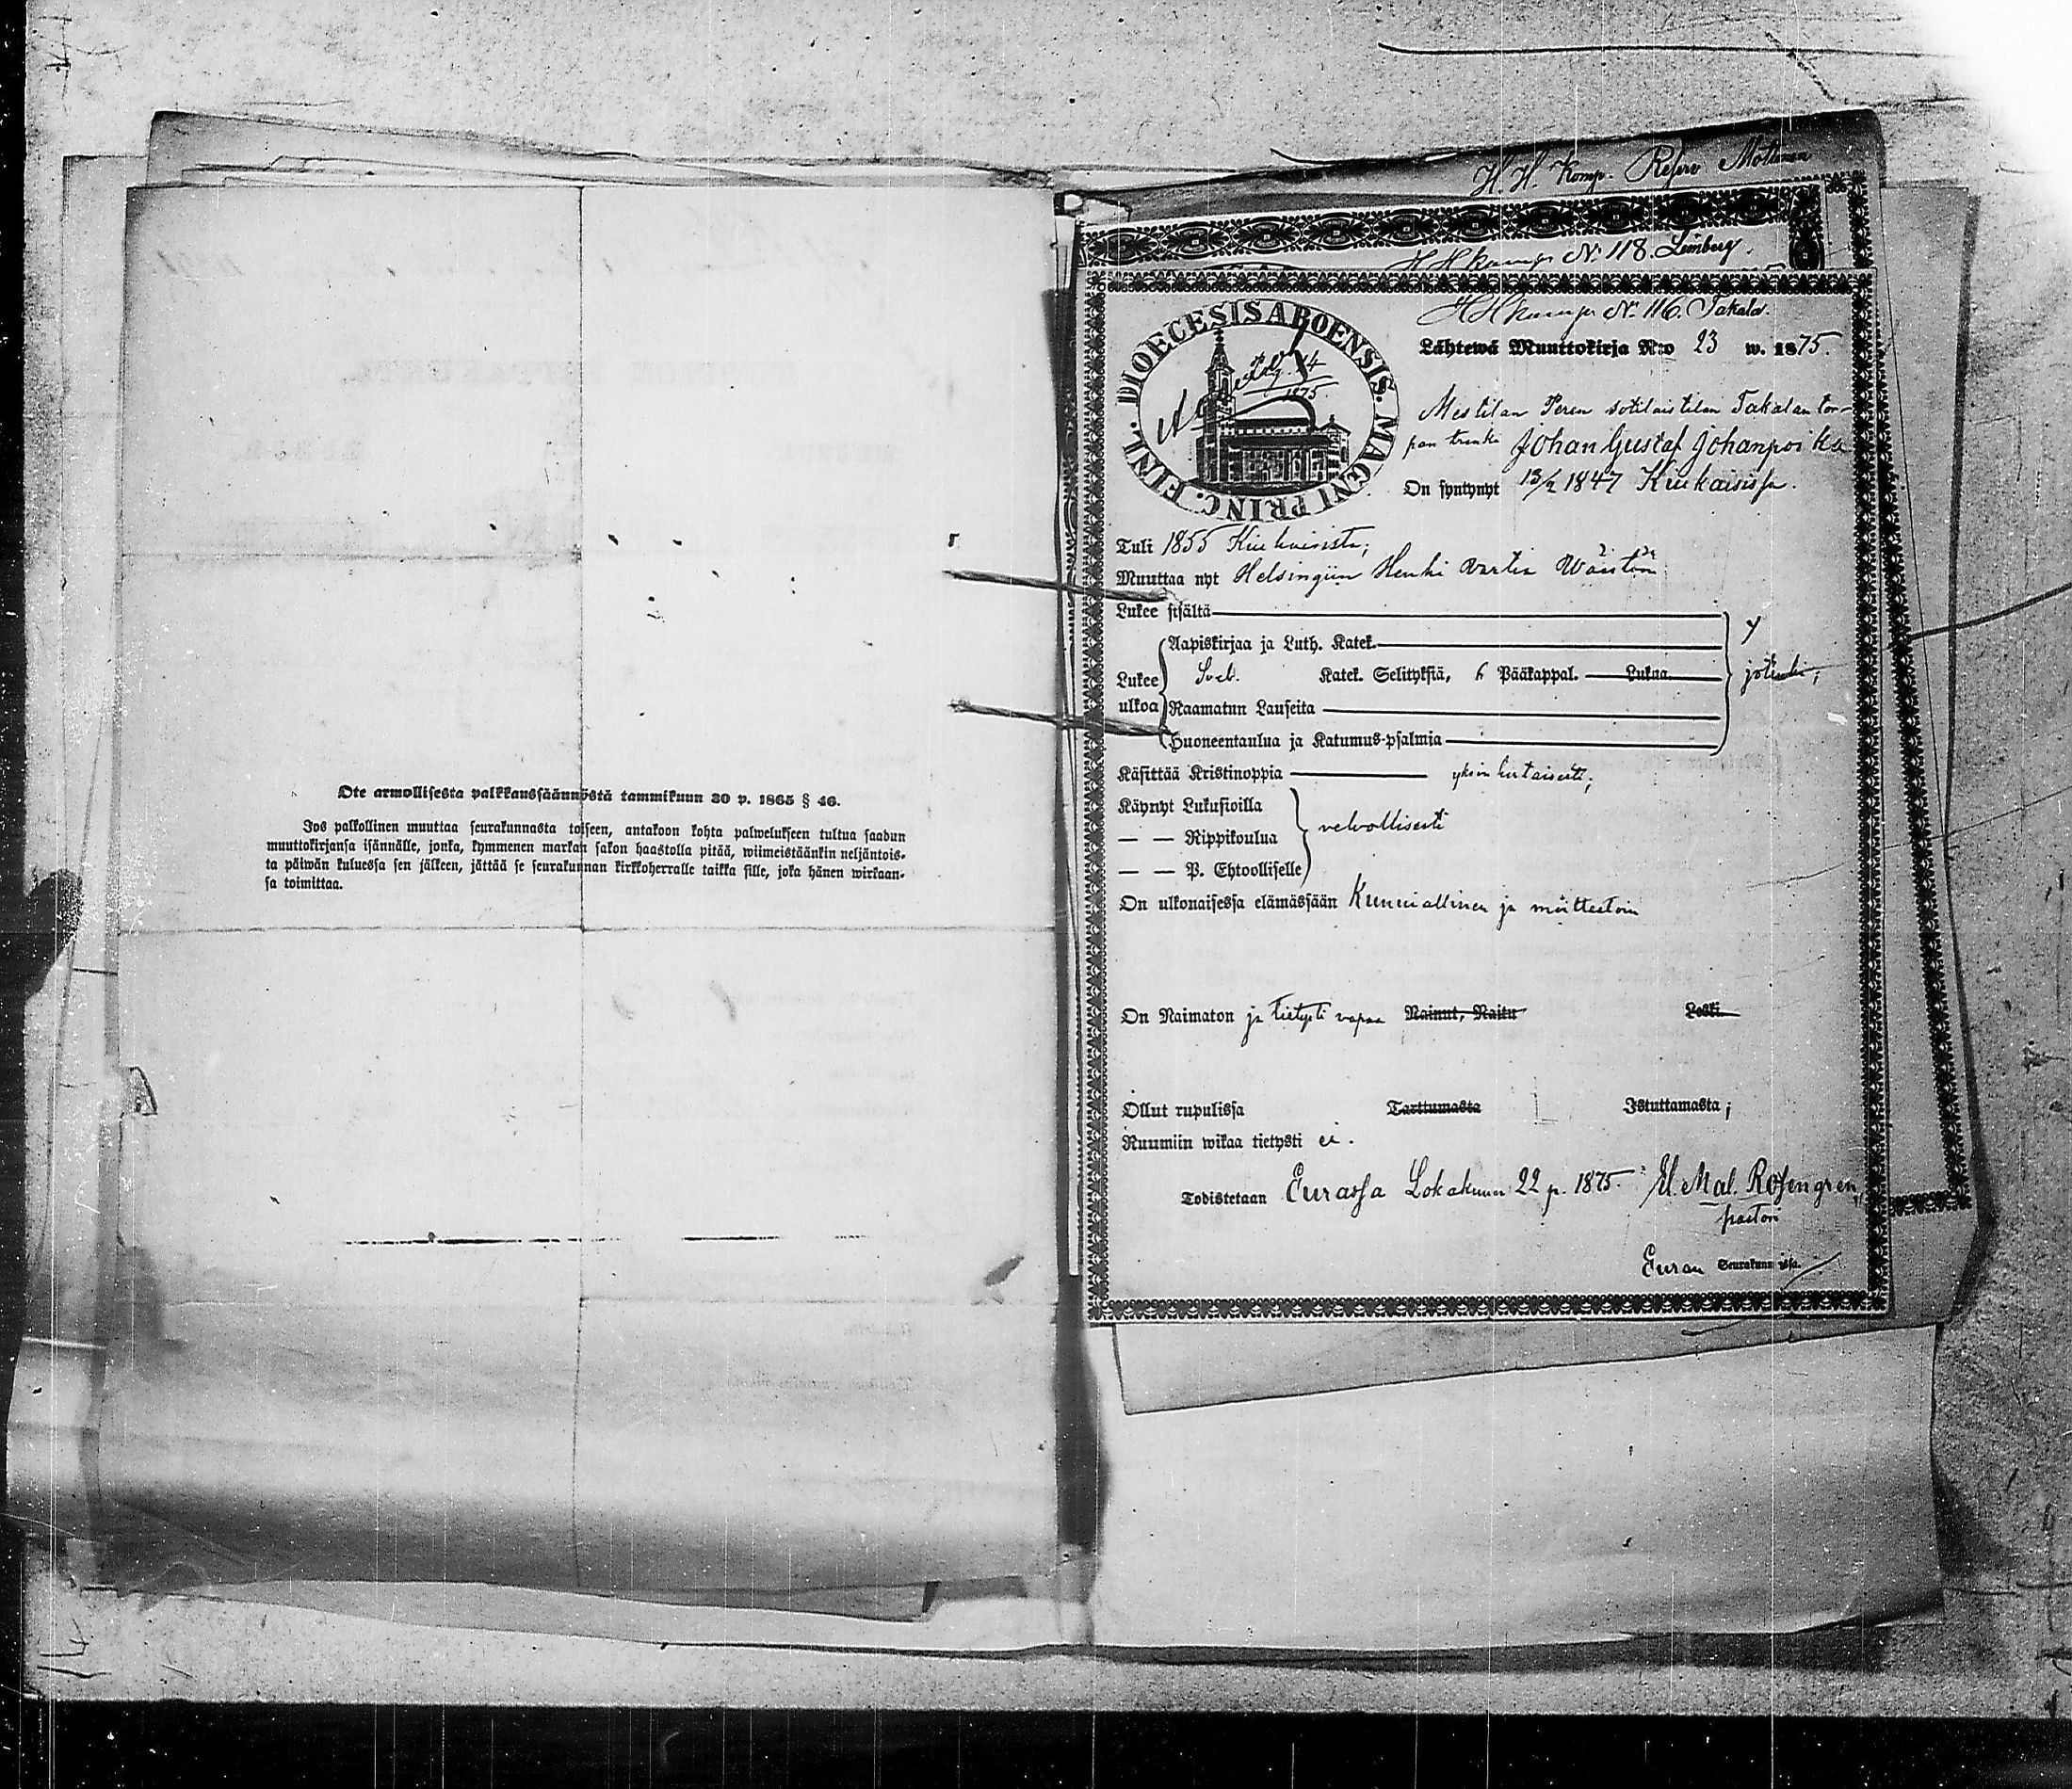 Ote armollisesta palkkaussäännöstä tammikuun 30 p. 1865 § 46.
Jos palkollinen muuttaa seurakunnasta toiseen, antakoon kohta palwelukseen tultua saadun
muuttokirjansa isännälle, jonka, kymmenen markan sakon haastolla pitää, wiimeistäänkin neljäntois-
ta päiwän kuluessa sen jälkeen, jättää se seurakunnan kirkkoherralle taikka sille, joka hänen wirkaan-
sa toimittaa.
H. H. Komp. Reserv Mottonen
H H kamp N: 118. Limberg.
H H kamp N: 116. Takala.
DIOECESIS ABOENSIS. MAGNI PRINC. FINL.
14
1875
Lähtewä Muuttokirja N:o 23 w. 1875.
Mestilan Peren sotilastilan Takalan tor-
pan trenki Johan Gustaf Johanpoika
On syntynyt 13/2 1847 Kiukaisissa.
Tuli 1855 Kiukaisista;
Muuttaa nyt Helsingiin Henki Vartia Wäistöön
Lukee sisältä
Aapiskirjaa ja Luth. Katek.
Lukee Sveb. Katek. Selityksiä, 6 Pääkappal. Lukua
ulkoa Raamatun Lauseita
Huoneentaulua ja Katumus-psalmia
Käsittää Kristinoppia yksinkertaisesti;
Käynyt Lukusioilla
— — Rippikoulua velvollisesti
— — P. Ehtoolliselle
On ulkonaisessa elämässään Kunniallinen ja moitteetoin
On Naimaton ja tietysti vapaa Nainut, Naitu Leski
Ollut rupulissa Tarttumasta Istuttamasta;
Ruumiin wikaa tietysti ei.
Todistetaan Eurassa Lokakuun 22 p. 1875. Mal. Rosengren
pastori
Euran Seurakunnissa.